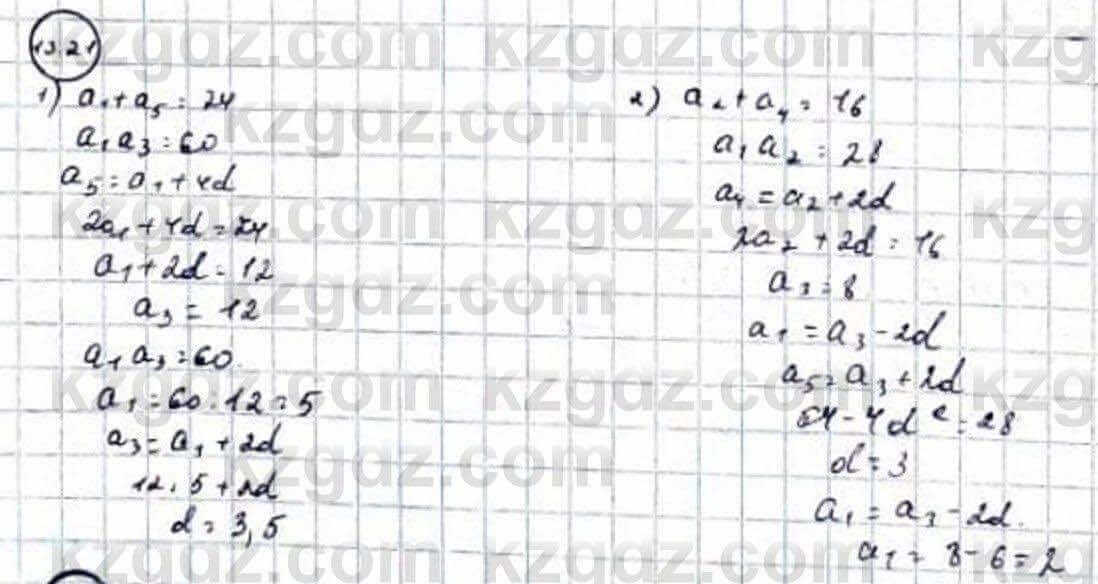 13.21
1) a₁+a₅=24
a₁a₃=60
a₅=a₁+4d
2a₁+4d=24
a₁+2d=12
a₃=12
a₁a₃=60.
a₁=60:12=5
a₃=a₁+2d
12=5+2d
d=3,5
2) a₂+a₄=16
a₁a₂=28
a₄=a₂+2d
2a₂+2d=16
a₃=8
a₁=a₃-2d
a₅=a₃+2d
64-4d²=28
d=3
a₁=a₃-2d.
a₁=8-6=2
kzgdz.com